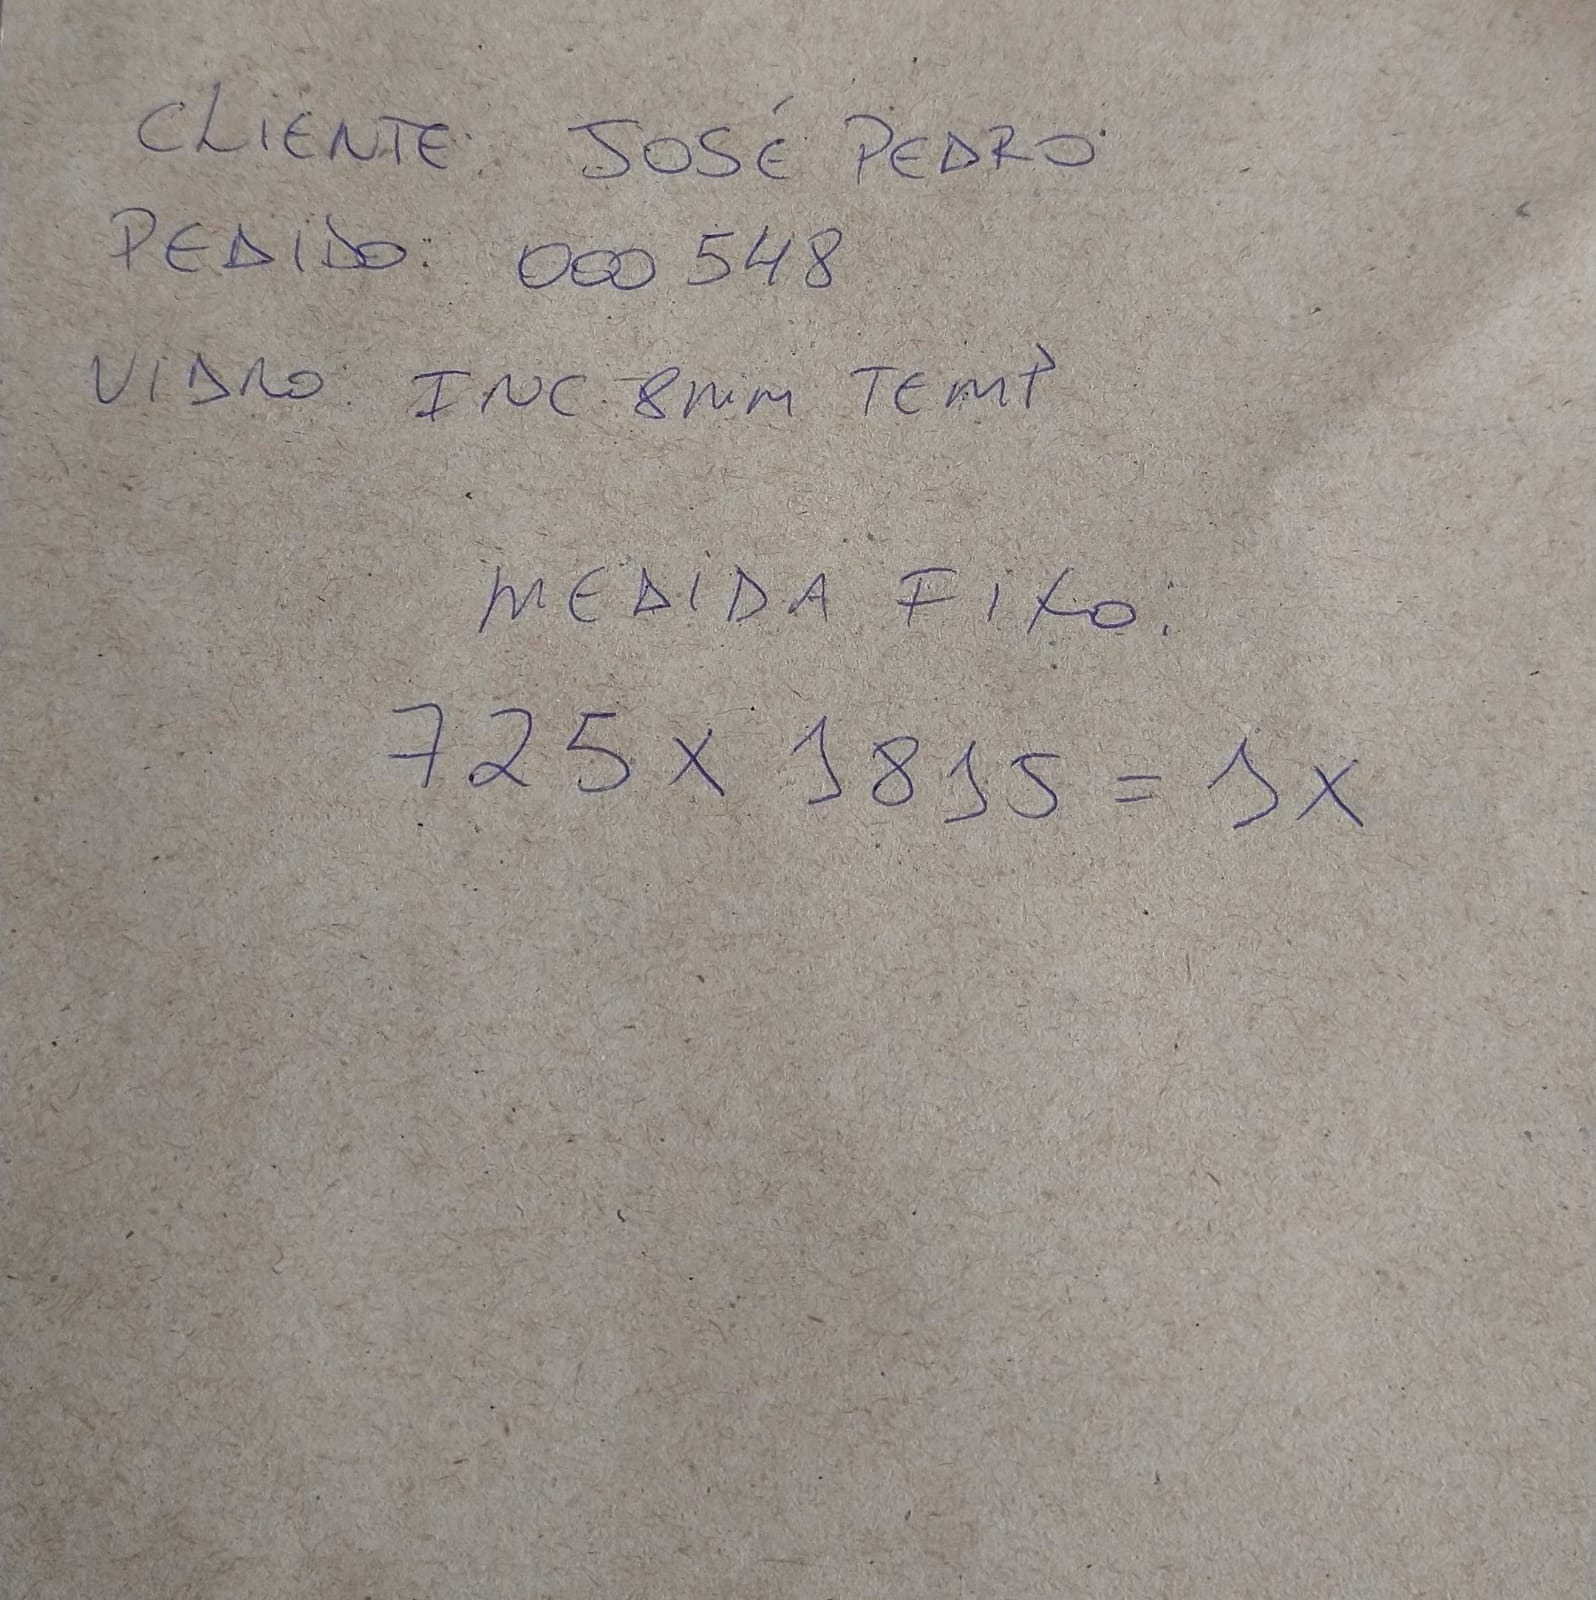 CLIENTE: JOSÉ PEDRO
PEDIDO: 000548
VIDRO: INC 8mm TEMP
MEDIDA FIXO:
725 x 1815 = 1x